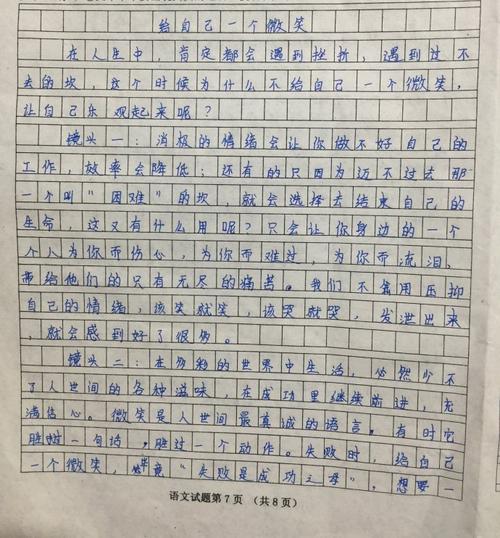 给自己一个微笑
在人生中，肯定都会遇到挫折，遇到过不
去的坎，这个时候为什么不给自己一个微笑，
让自己乐观起来呢？
镜头一：消极的情绪会让你做不好自己的
工作，效率会降低；还有的只因为迈不过去那
一个叫“困难”的坎，就会选择去结束自己的
生命，这又有什么用呢？只会让你身边的一个
个人为你而伤心，为你而难过，为你而流泪、
带给他们的只有无尽的痛苦。我们不需用压抑
自己的情绪，该笑就笑，该哭就哭，发泄出来
，就会感到好了很多。
镜头二：在多彩的世界中生活，必然少不
了人世间的各种滋味，在成功里继续前进，充
满信心。微笑是人世间最真诚的语言。有时它
胜过一句话，胜过一个动作。失败时，给自己
一个微笑，毕竟“失败是成功之母”，想要一
语文试题第7页（共8页）